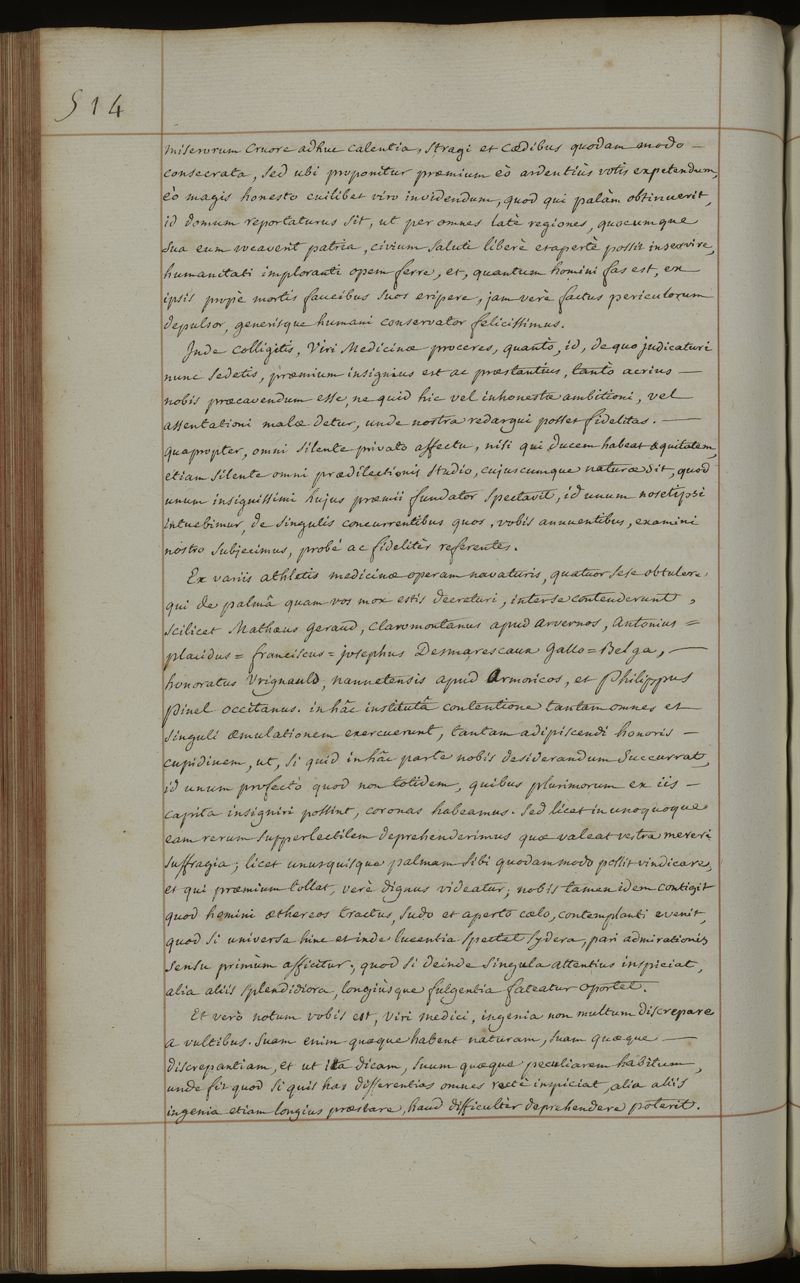 514
miserorum cruore adhuc calentia, stragi et cædibus quodam modo —
consecrata, sed ubi proponitur præmium eò ardentiùs votis expetendum,
eò magis honesto cuilibet viro invidendum, quod qui palàm obtinuerit,
id domum reportaturus sit, ut per omnes latè regiones, quocumque
sua eum vocaverit patria, civium saluti liberè et apertè possit inservire,
humanitati imploranti opem ferre, et, quantum homini fas est, ex
ipsis propè mortis faucibus suos eripere, jam verè factus periculorum
depulsor, generisque humani conservator felicissimus.
Inde colligitis, Viri Medicinæ proceres, quantò, id, de quo judicaturi
nunc sedetis, præmium insignius est ac præstantius, tantò acrius —
nobis præcavendum esse, ne quid hic vel inhonestæ ambitioni, vel
assentationi malæ detur, unde nostra redargui posset fidelitas. —
quapropter, omni silente privato affectu, nisi qui ducem habeat æquitatem,
etiam silente omni prædilectionis studio, cujuscumque naturæ sit, quod
unum insignissimi hujus præmii fundator spectavit, id unum nosetipsi
intuebimur, de singulis concurrentibus quos, vobis annuentibus, examini
nostro subjecimus, probé ac fidelitèr referentes.
Ex variis athletis medicinæ operam navaturis, quatuor sese obtulere,
qui de palmâ quam vos mox estis decreturi, inter se contenderunt,
scilicet Mathæus Geraud, claromontanus apud arvernos, antonius =
placidus = franciscus = josephus Desmarescaux Gallo = Belga, —
honoratus Vrignauld, nannetensis apud Armoricos, et Philippus
Pinel occitanus. in hâc institutâ contentione tantam omnes et
singuli æmulationem exercuerunt, tantam adipiscendi honoris —
cupidinem, ut, si quid in hâc parte nobis desiderandum succurrat,
id unum profectò quod non totidem, quibus plurimorum ex iis —
capita insigniri possint, coronas habeamus. Sed licet in unoquoque
eam rerum supperlectilem deprehenderimus quæ valeat vestra mereri
suffragia; licet unusquisque palmam sibi quodammodo possit vindicare,
et qui præmium tollat, verè dignus videatur; nobis tamen idem contigit
quod hemini æthereos tractus, sudo et aperto cælo, contemplanti evenit,
quod si universa hinc et inde lucentia spectet sydera, pari admirationis
sensu primùm afficitur; quod si deinde singula attentius inspiciat,
alia aliis splendidiora, longiùsque fulgentia fateatur oportet.
Et verò notum vobis est, viri medici, ingenia non multum discrepare
a vultibus. Suam enim quæque habent naturam, suam quæque —
discrepantiam, et ut ita dicam, suum quæque peculiarem habitum,
unde fit quod si quis has differentias omnes rectè inspiciat, alia aliis
ingenia etiam longius præstare, haud difficultèr deprehendere poterit.